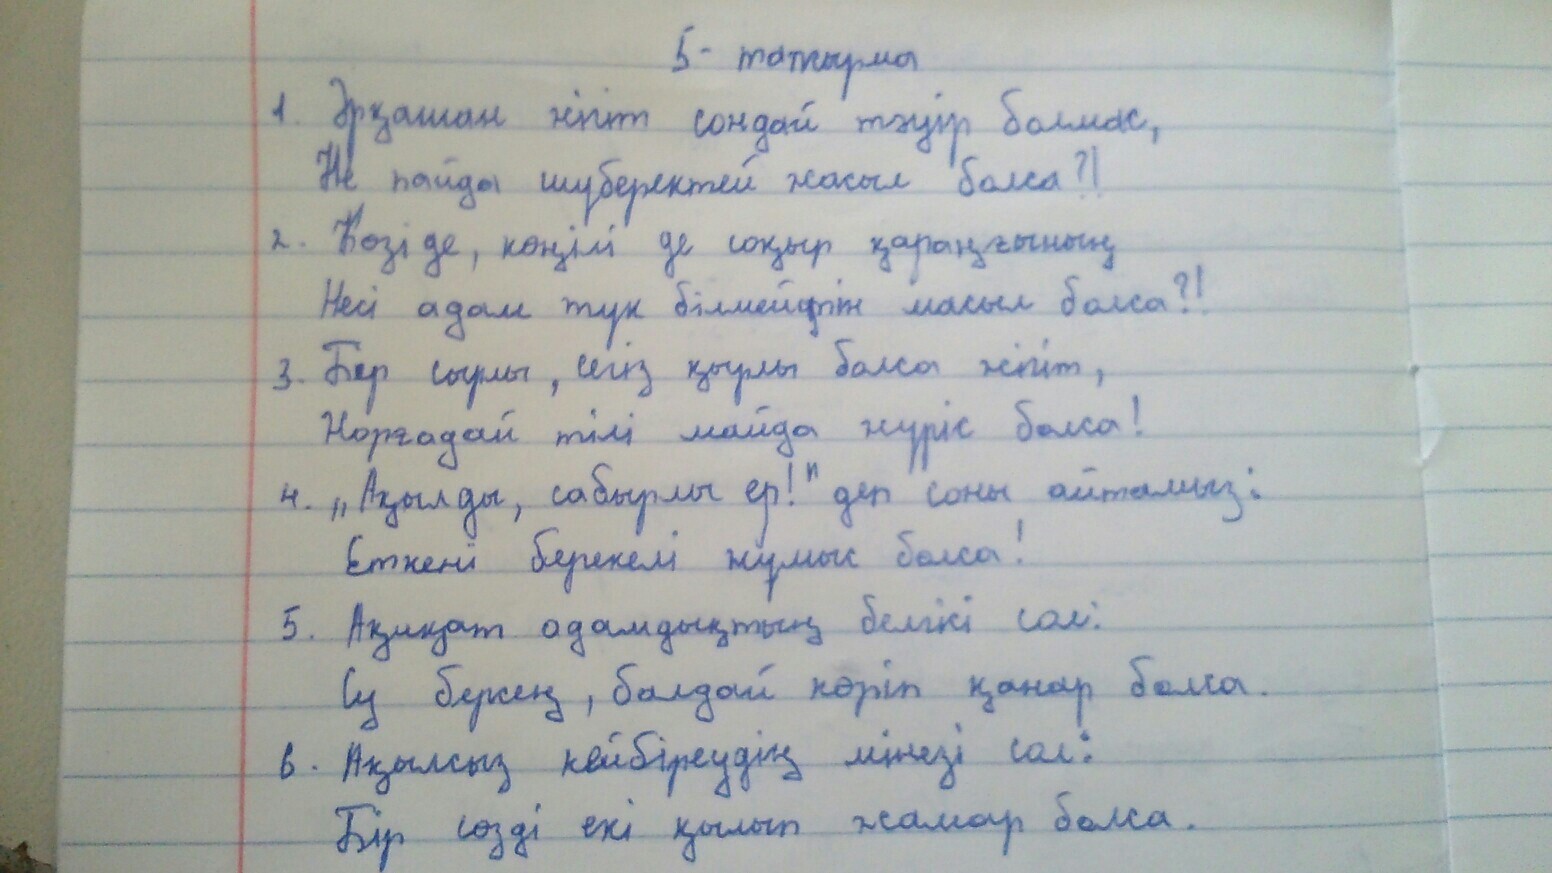 5- тапсырма
1. Әрқашан жігіт сондай тәуір болмас,
Не пайда шүберектей жасыл болса?!
2. Көзі де, көңілі де соқыр қараңғының
Несі адам түк білмейтін масыл болса?!
3. Бер сырлы, сегіз қырлы болса жігіт,
Жорғадай тілі майда жүріс болса!
4. „Ақылды, сабырлы ер!" деп соны айтамыз:
Еткені берекелі жұмыс болса!
5. Ақиқат адамдықтың белгісі сол:
Су берсең, балдай көріп қанар болса.
6. Ақылсыз кейбіреудің мінезі сол:
Бір сөзді екі қылып жамар болса.